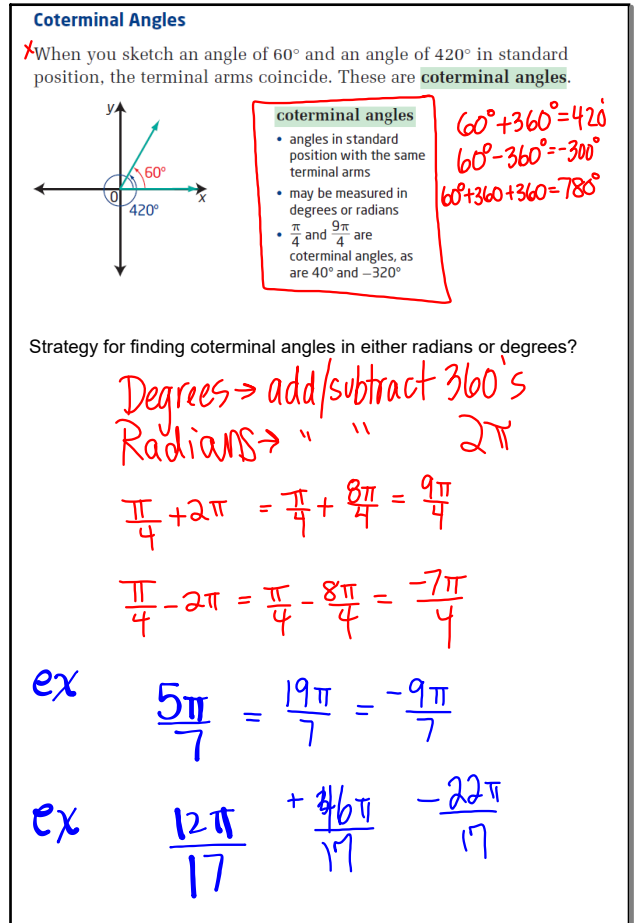 Coterminal Angles
xWhen you sketch an angle of 60° and an angle of 420° in standard
position, the terminal arms coincide. These are coterminal angles.
y
60°
0
x
420°
coterminal angles
• angles in standard
position with the same
terminal arms
• may be measured in
degrees or radians
• π/4 and 9π/4 are
coterminal angles, as
are 40° and −320°
60°+360°=420°
60°-360°=-300°
60°+360+360=780°
Strategy for finding coterminal angles in either radians or degrees?
Degrees → add/subtract 360's
Radians → " " 2π
π/4 + 2π = π/4 + 8π/4 = 9π/4
π/4 - 2π = π/4 - 8π/4 = -7π/4
ex 5π/7 = 19π/7 = -9π/7
ex 12π/17 + 46π/17 - 22π/17